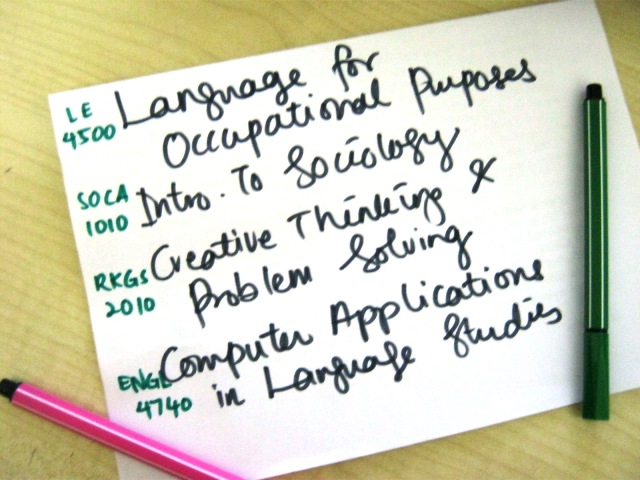 LE Language for
4500 Occupational Purposes
SOCA Intro. To Sociology
1010
RKGS Creative Thinking &
2010 Problem Solving
ENGL Computer Applications
4740 in Language Studies